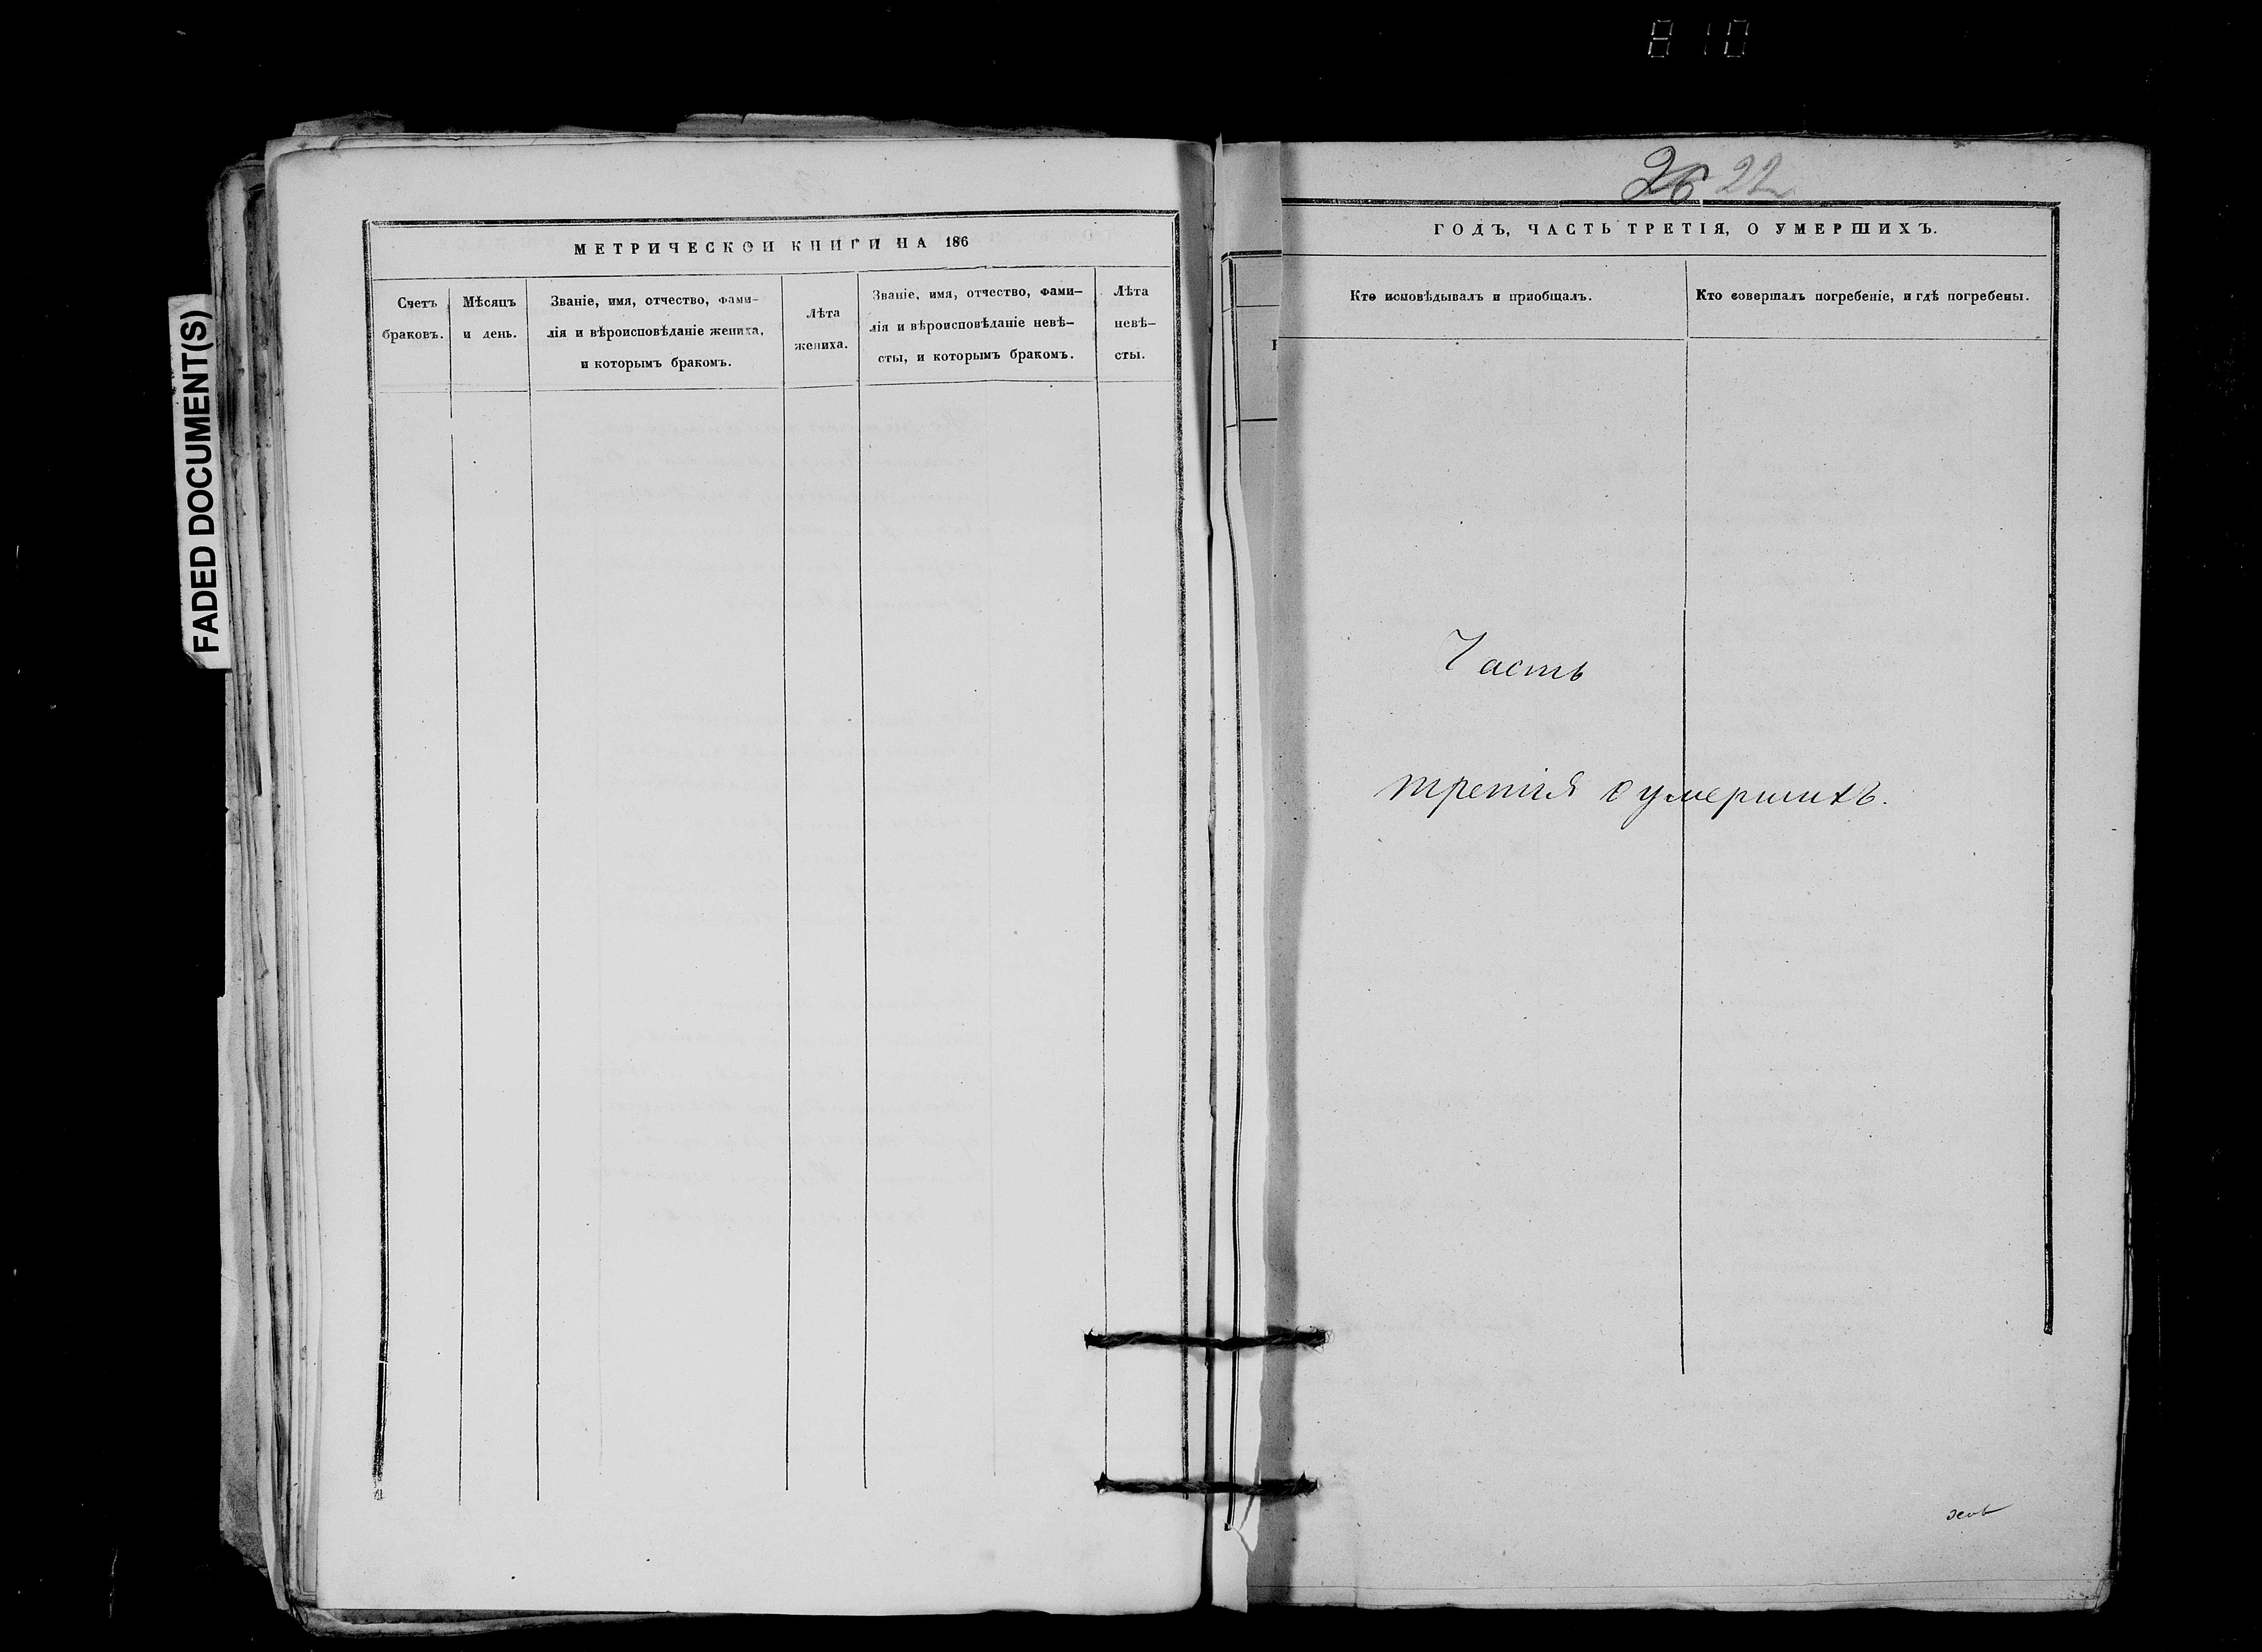 8 10
FADED DOCUMENT(S)
МЕТРИЧЕСКОЙ КНИГИ НА 186
Счетъ браковъ.
Мѣсяцъ и день.
Званіе, имя, отчество, фами-
лія и вѣроисповѣданіе жениха,
и которымъ бракомъ.
Лѣта
жениха.
Званіе, имя, отчество, фами-
лія и вѣроисповѣданіе невѣ-
сты, и которымъ бракомъ.
Лѣта
невѣ-
сты.
26 22
ГОДЪ, ЧАСТЬ ТРЕТІЯ, О УМЕРШИХЪ.
Кто исповѣдывалъ и приобщалъ.
Кто совершалъ погребеніе, и гдѣ погребены.
Часть
третія о умершихъ.